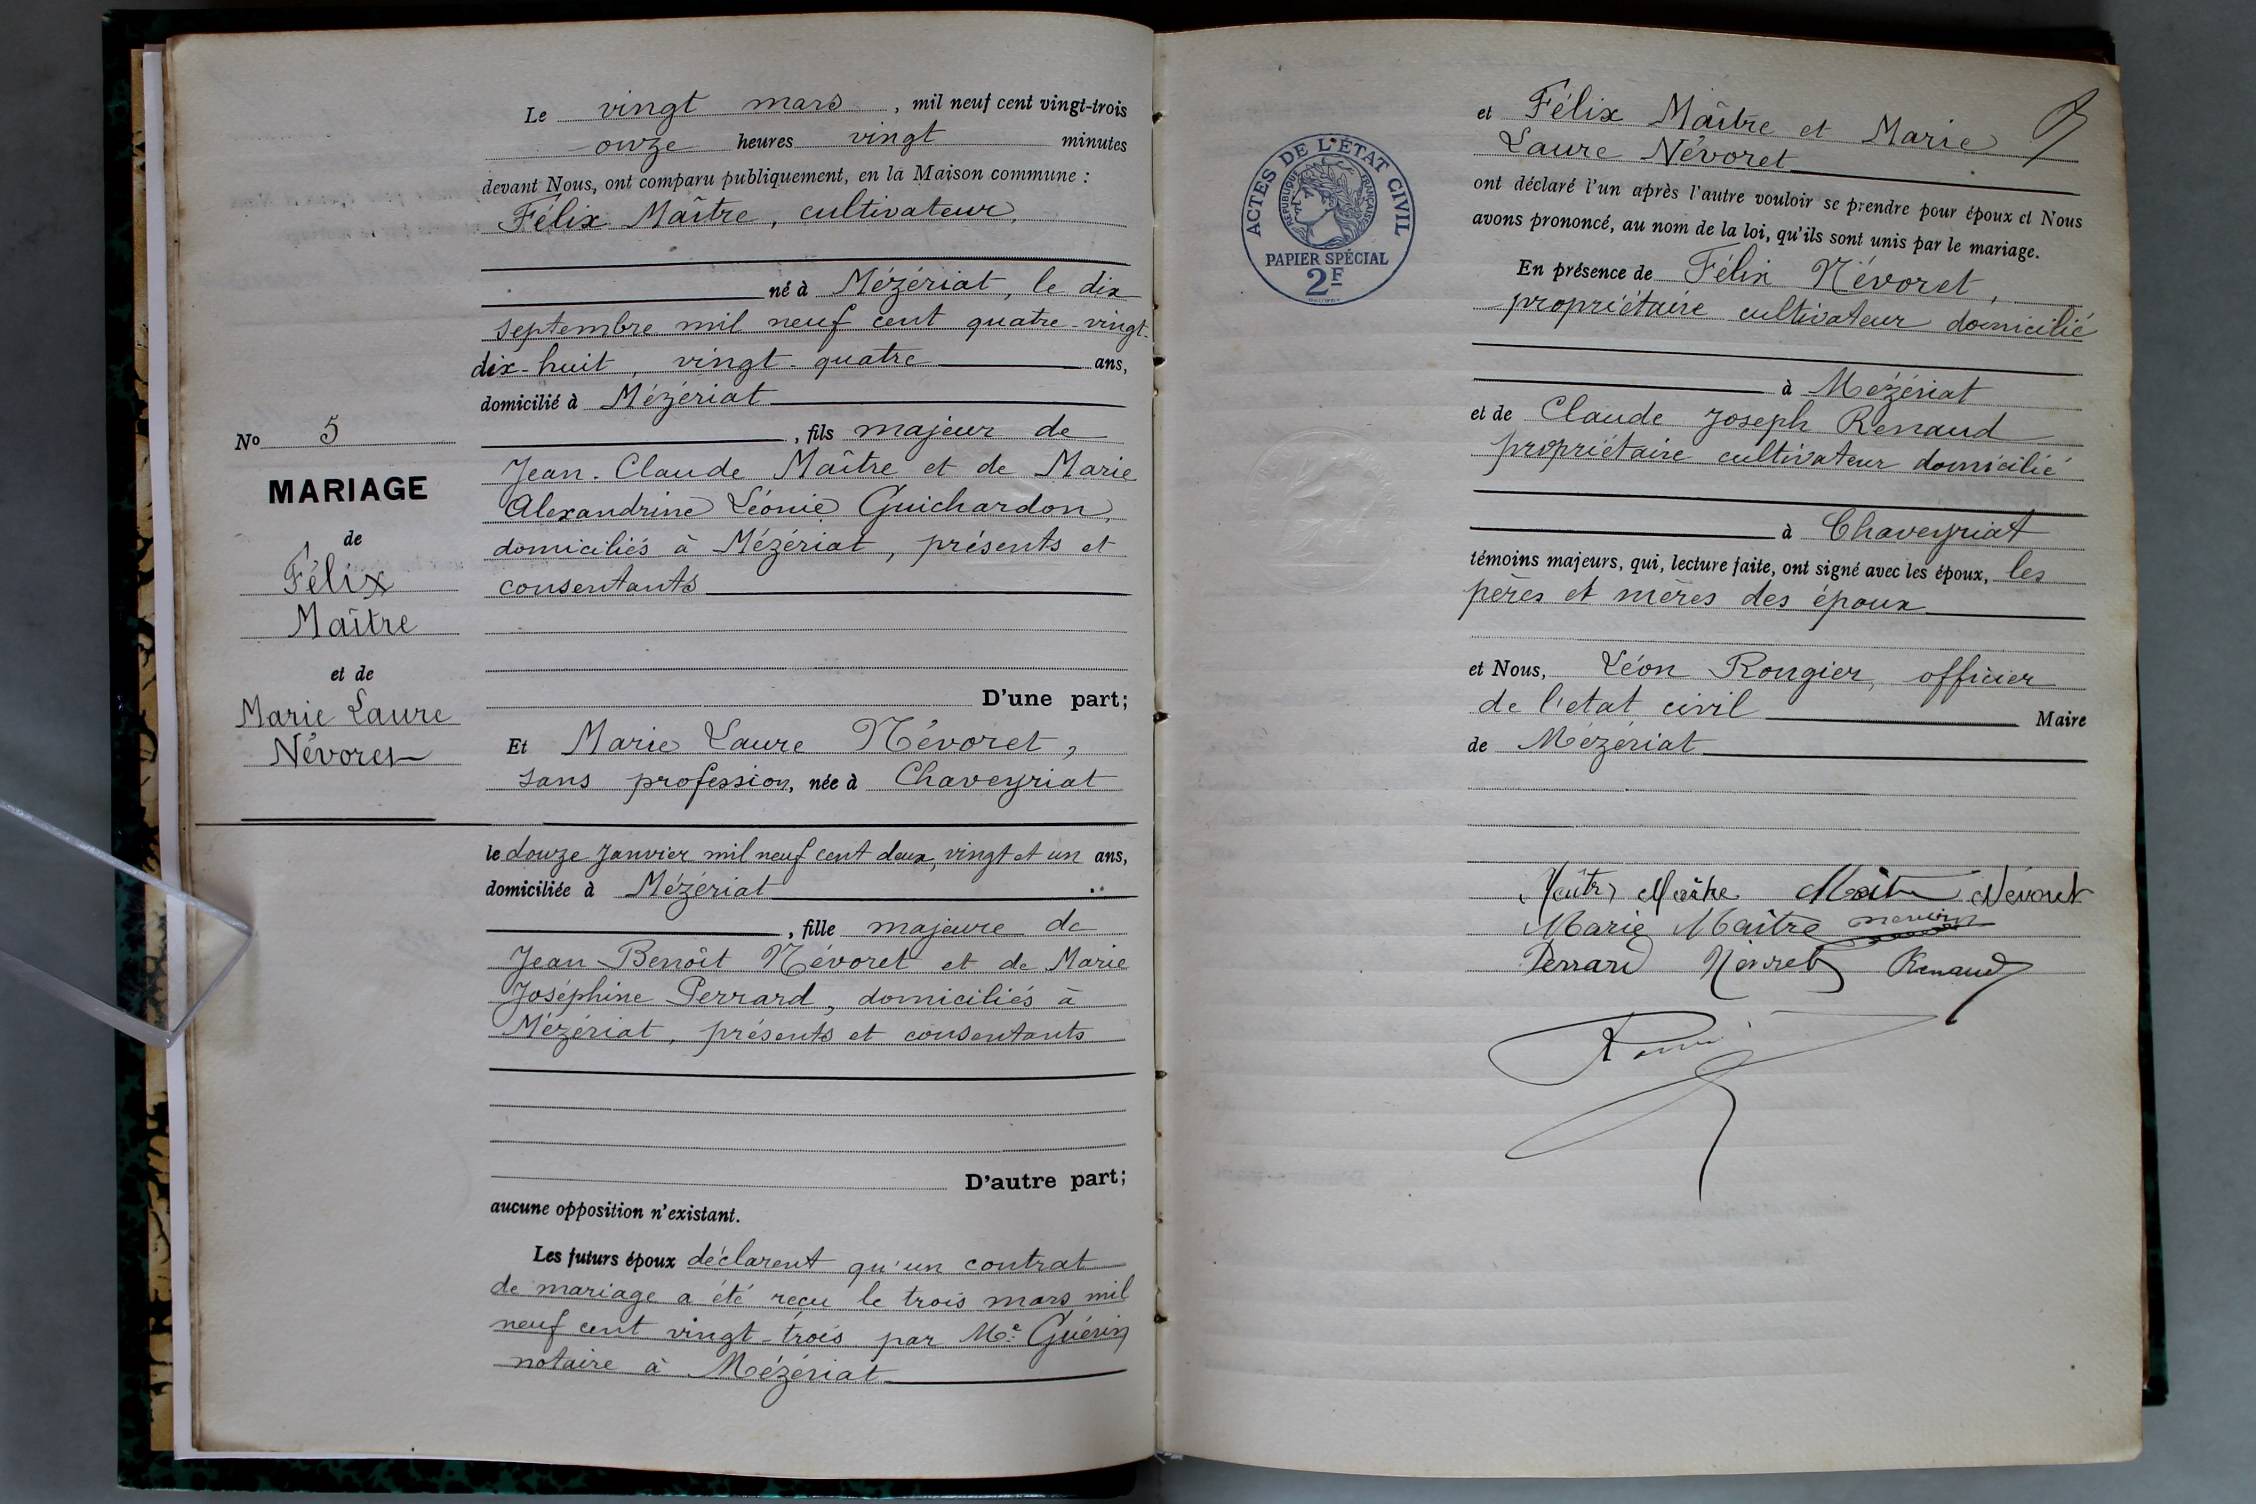 Le vingt mars, mil neuf cent vingt-trois
onze heures vingt minutes
devant Nous, ont comparu publiquement, en la Maison commune :
Félix Maître, cultivateur,
né à Mézériat, le dix
septembre mil neuf cent quatre-vingt-
dix-huit, vingt-quatre ans,
domicilié à Mézériat
, fils majeur de
Jean-Claude Maître et de Marie
Alexandrine Léonie Guichardon,
domiciliés à Mézériat, présents et
consentants
D'une part;
Et Marie Laure Névoret,
sans profession, née à Chaveyriat
le douze Janvier mil neuf cent deux, vingt et un ans,
domiciliée à Mézériat
, fille majeure de
Jean-Benoît Névoret et de Marie
Joséphine Perrard, domiciliés à
Mézériat, présents et consentants
D'autre part;
aucune opposition n'existant.
Les futurs époux déclarent qu'un contrat
de mariage a été reçu le trois mars mil
neuf cent vingt-trois par Me Guérin
notaire à Mézériat
No 5
MARIAGE
de
Félix
Maître
et de
Marie Laure
Névoret
ACTES DE L'ÉTAT CIVIL
RÉPUBLIQUE FRANÇAISE
PAPIER SPÉCIAL
2F
et Félix Maître et Marie
Laure Névoret
ont déclaré l'un après l'autre vouloir se prendre pour époux et Nous
avons prononcé, au nom de la loi, qu'ils sont unis par le mariage.
En présence de Félix Névoret,
propriétaire cultivateur domicilié
à Mézériat
et de Claude Joseph Renaud
propriétaire cultivateur domicilié
à Chaveyriat
témoins majeurs, qui, lecture faite, ont signé avec les époux, les
pères et mères des époux
et Nous, Léon Rongier, officier
de l'etat civil Maire
de Mézériat
Maître Maître Maître Névoret
Marie Maître
Perrard Névoret Renaud